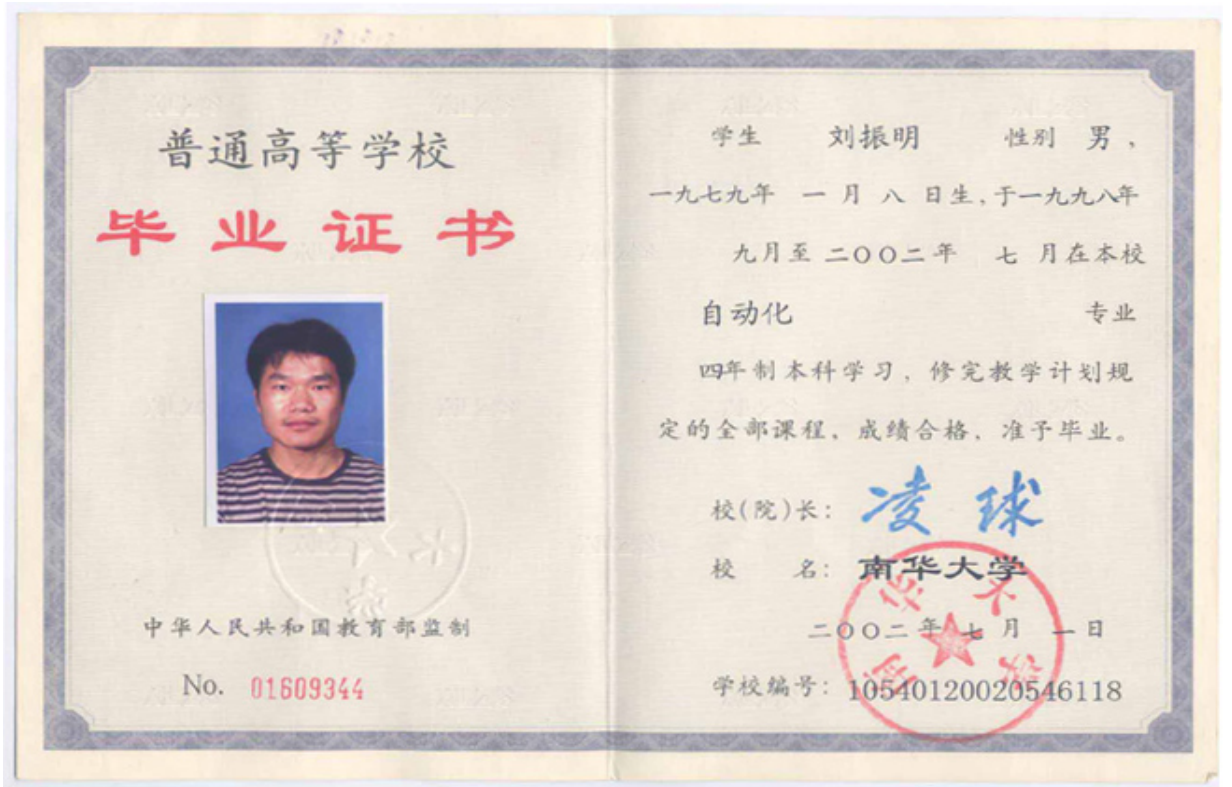 普通高等学校
毕业证书
中华人民共和国教育部监制
No. 01609344
学生 刘振明 性别 男，
一九七九年 一月八日生，于一九九八年
九月至二〇〇二年 七月在本校
自动化 专业
四年制本科学习，修完教学计划规
定的全部课程，成绩合格，准予毕业。
校(院)长： 凌球
校 名： 南华大学
二〇〇二年七月一日
学校编号：10540120020546118